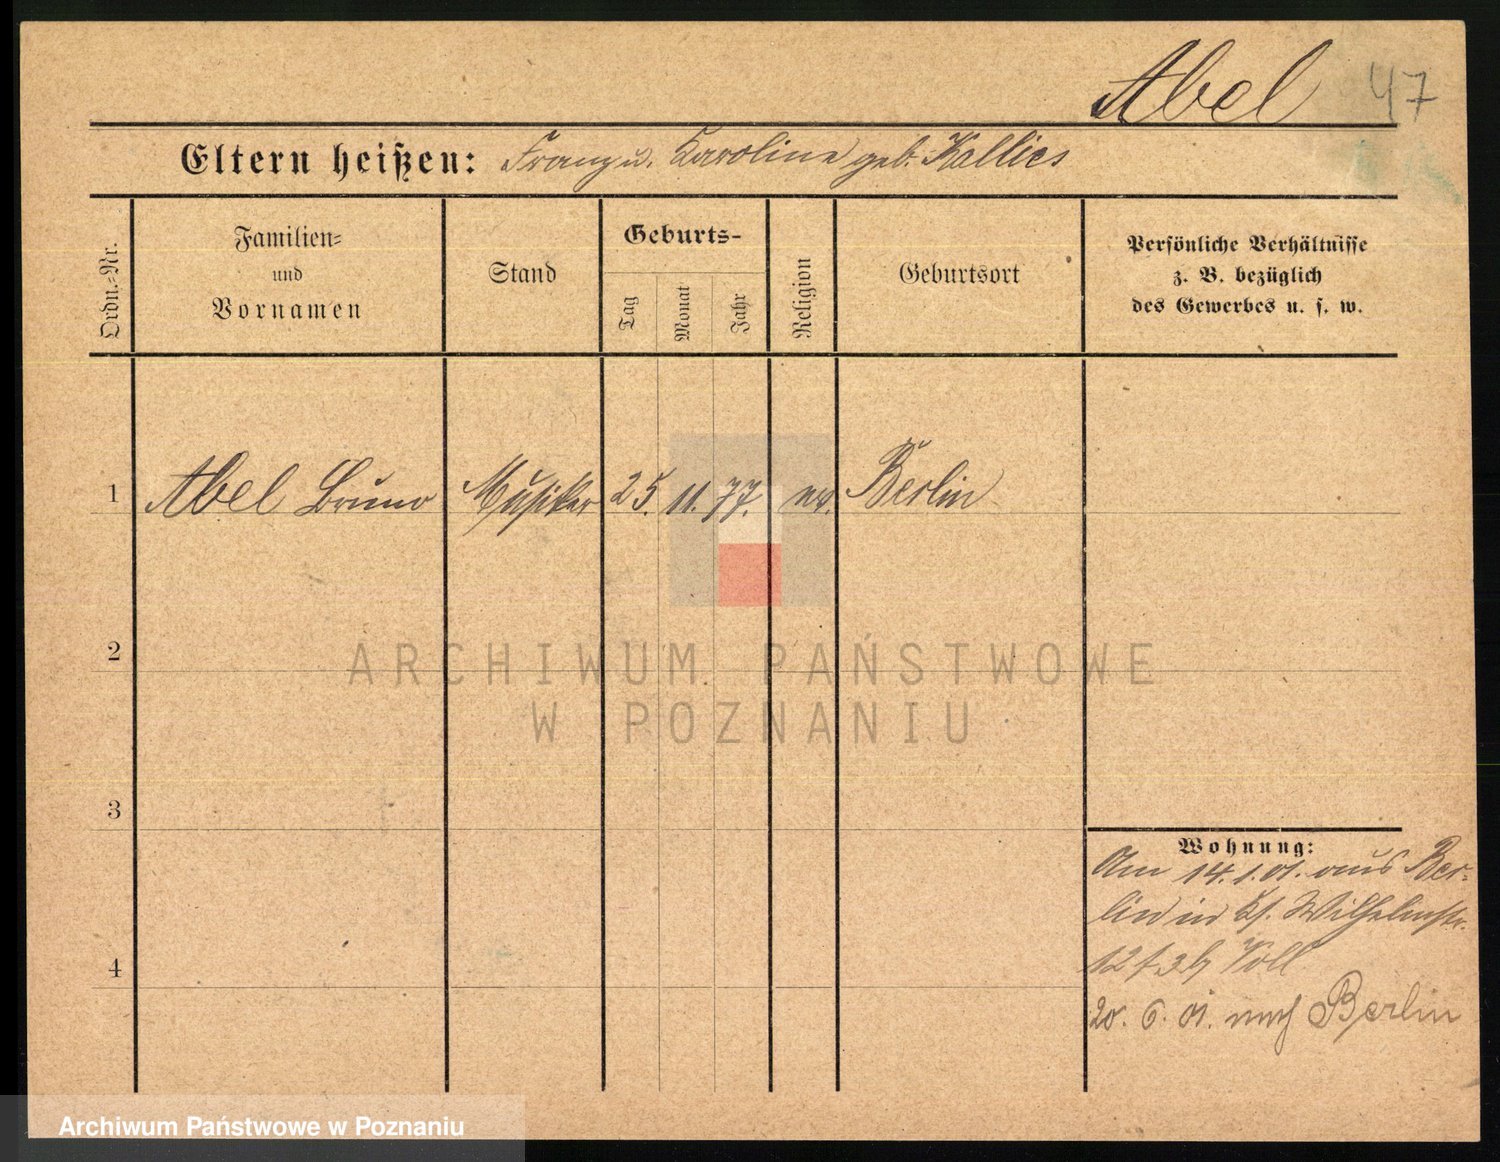 Abel 47
Eltern heißen: Franz u. Karoline geb. Kallies
Ordn.-Nr.
Familien-
und
Vornamen
Stand
Geburts-
Tag
Monat
Jahr
Religion
Geburtsort
Persönliche Verhältnisse
z. B. bezüglich
des Gewerbes u. s. w.
1 Abel Bruno Musiker 25. 11. 77. ev. Berlin
2
ARCHIWUM PAŃSTWOWE
W POZNANIU
3
Wohnung:
Am 14.1.01. aus Ber-
lin in Wilhelmstr.
4
12 Voll
20. 6. 01. nach Berlin
Archiwum Państwowe w Poznaniu